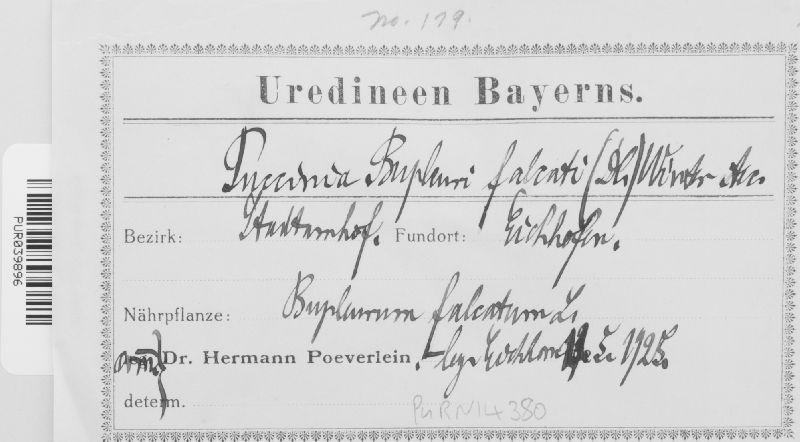 No. 179.
Uredineen Bayerns.
Puccinia Bupleuri falcati (DC.) Wint.
Bezirk: Stadtamhof. Fundort: Eichhofen.
Nährpflanze: Bupleurum falcatum L.
Dr. Hermann Poeverlein. leg. 1925.
determ.
PUR N14380
PUR039896